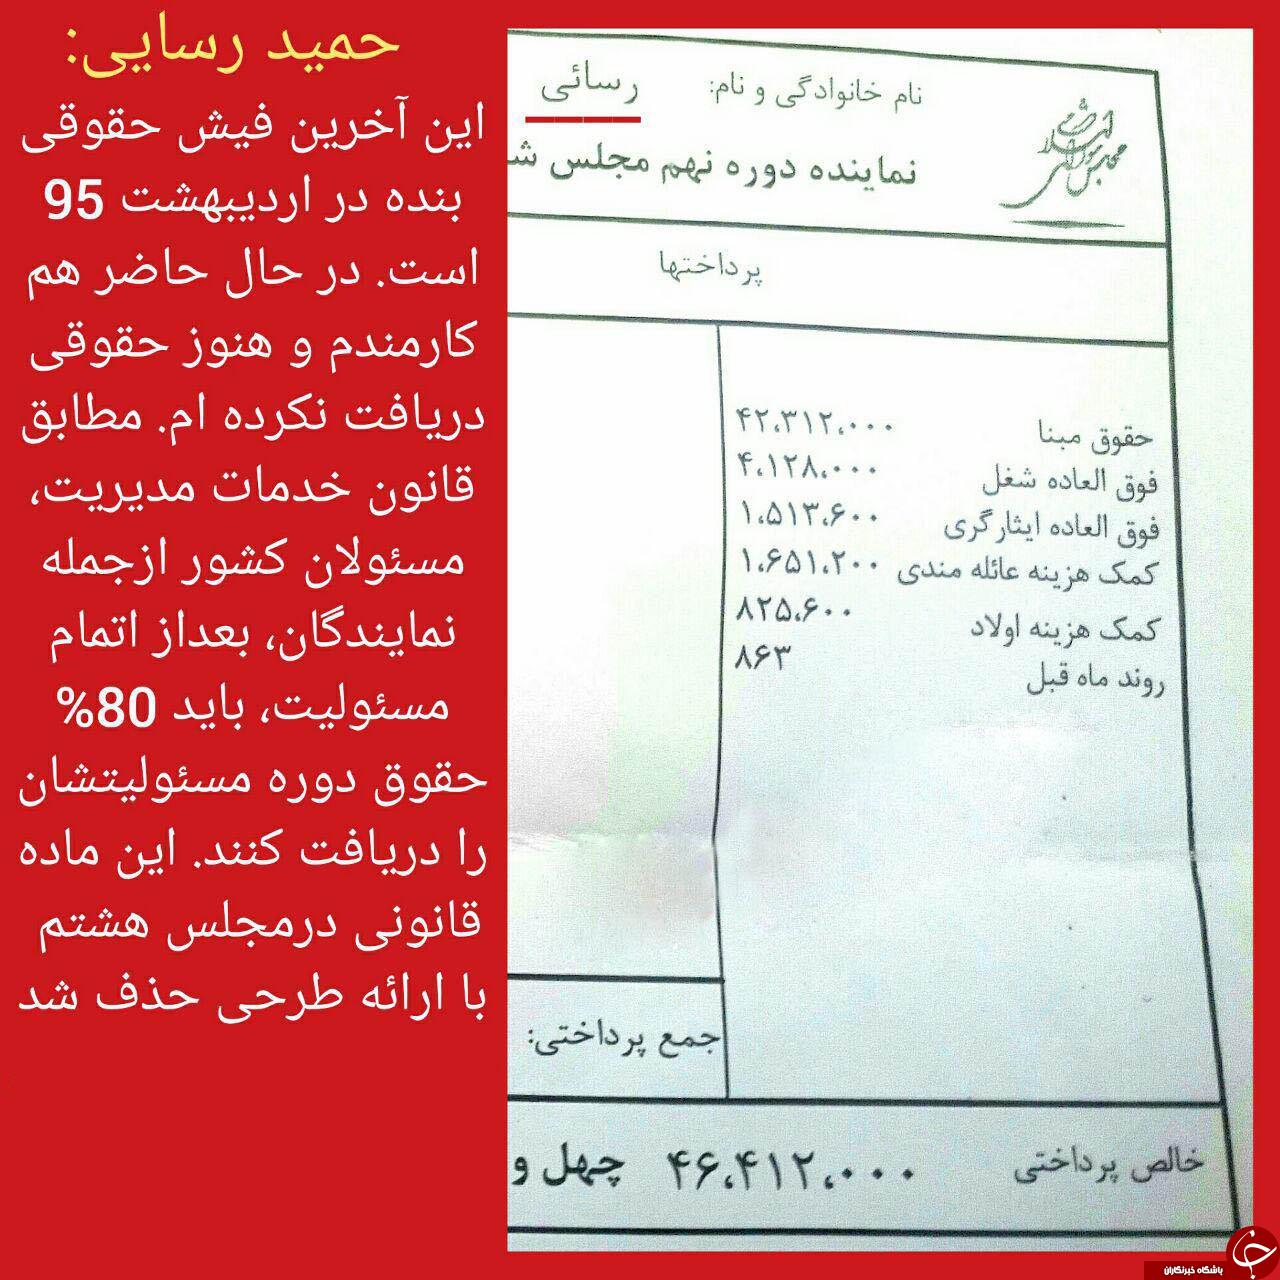 حمید رسایی:
این آخرین فیش حقوقی
بنده در اردیبهشت 95
است. در حال حاضر هم
کارمندم و هنوز حقوقی
دریافت نکرده ام. مطابق
قانون خدمات مدیریت،
مسئولان کشور ازجمله
نمایندگان، بعداز اتمام
مسئولیت، باید 80%
حقوق دوره مسئولیتشان
را دریافت کنند. این ماده
قانونی درمجلس هشتم
با ارائه طرحی حذف شد
مجلس شورای اسلامی
نام خانوادگی و نام: رسائی
نماینده دوره نهم مجلس شـ
پرداختها
حقوق مبنا ۴۲،۳۱۲،۰۰۰
فوق العاده شغل ۴،۱۲۸،۰۰۰
فوق العاده ایثارگری ۱،۵۱۳،۶۰۰
کمک هزینه عائله مندی ۱،۶۵۱،۲۰۰
کمک هزینه اولاد ۸۲۵،۶۰۰
روند ماه قبل ۸۶۳
جمع پرداختی:
خالص پرداختی ۴۶،۴۱۲،۰۰۰ چهل و
باشگاه خبرنگاران